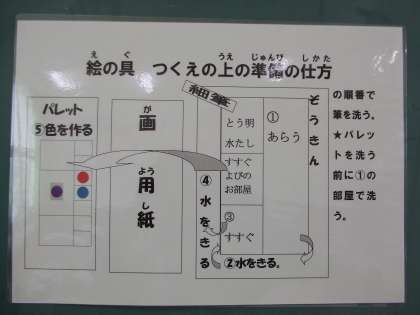 絵の具　つくえの上の準備の仕方
え　ぐ　うえ　じゅんび　しかた
パレット
⑤色を作る
画用紙
が　よう　し
細筆
とう明
水たし
すすぐ
よびの
お部屋
③
すすぐ
①
あらう
ぞうきん
④水をきる
②水をきる。
の順番で
筆を洗う。
★パレッ
トを洗う
前に①の
部屋で洗
う。